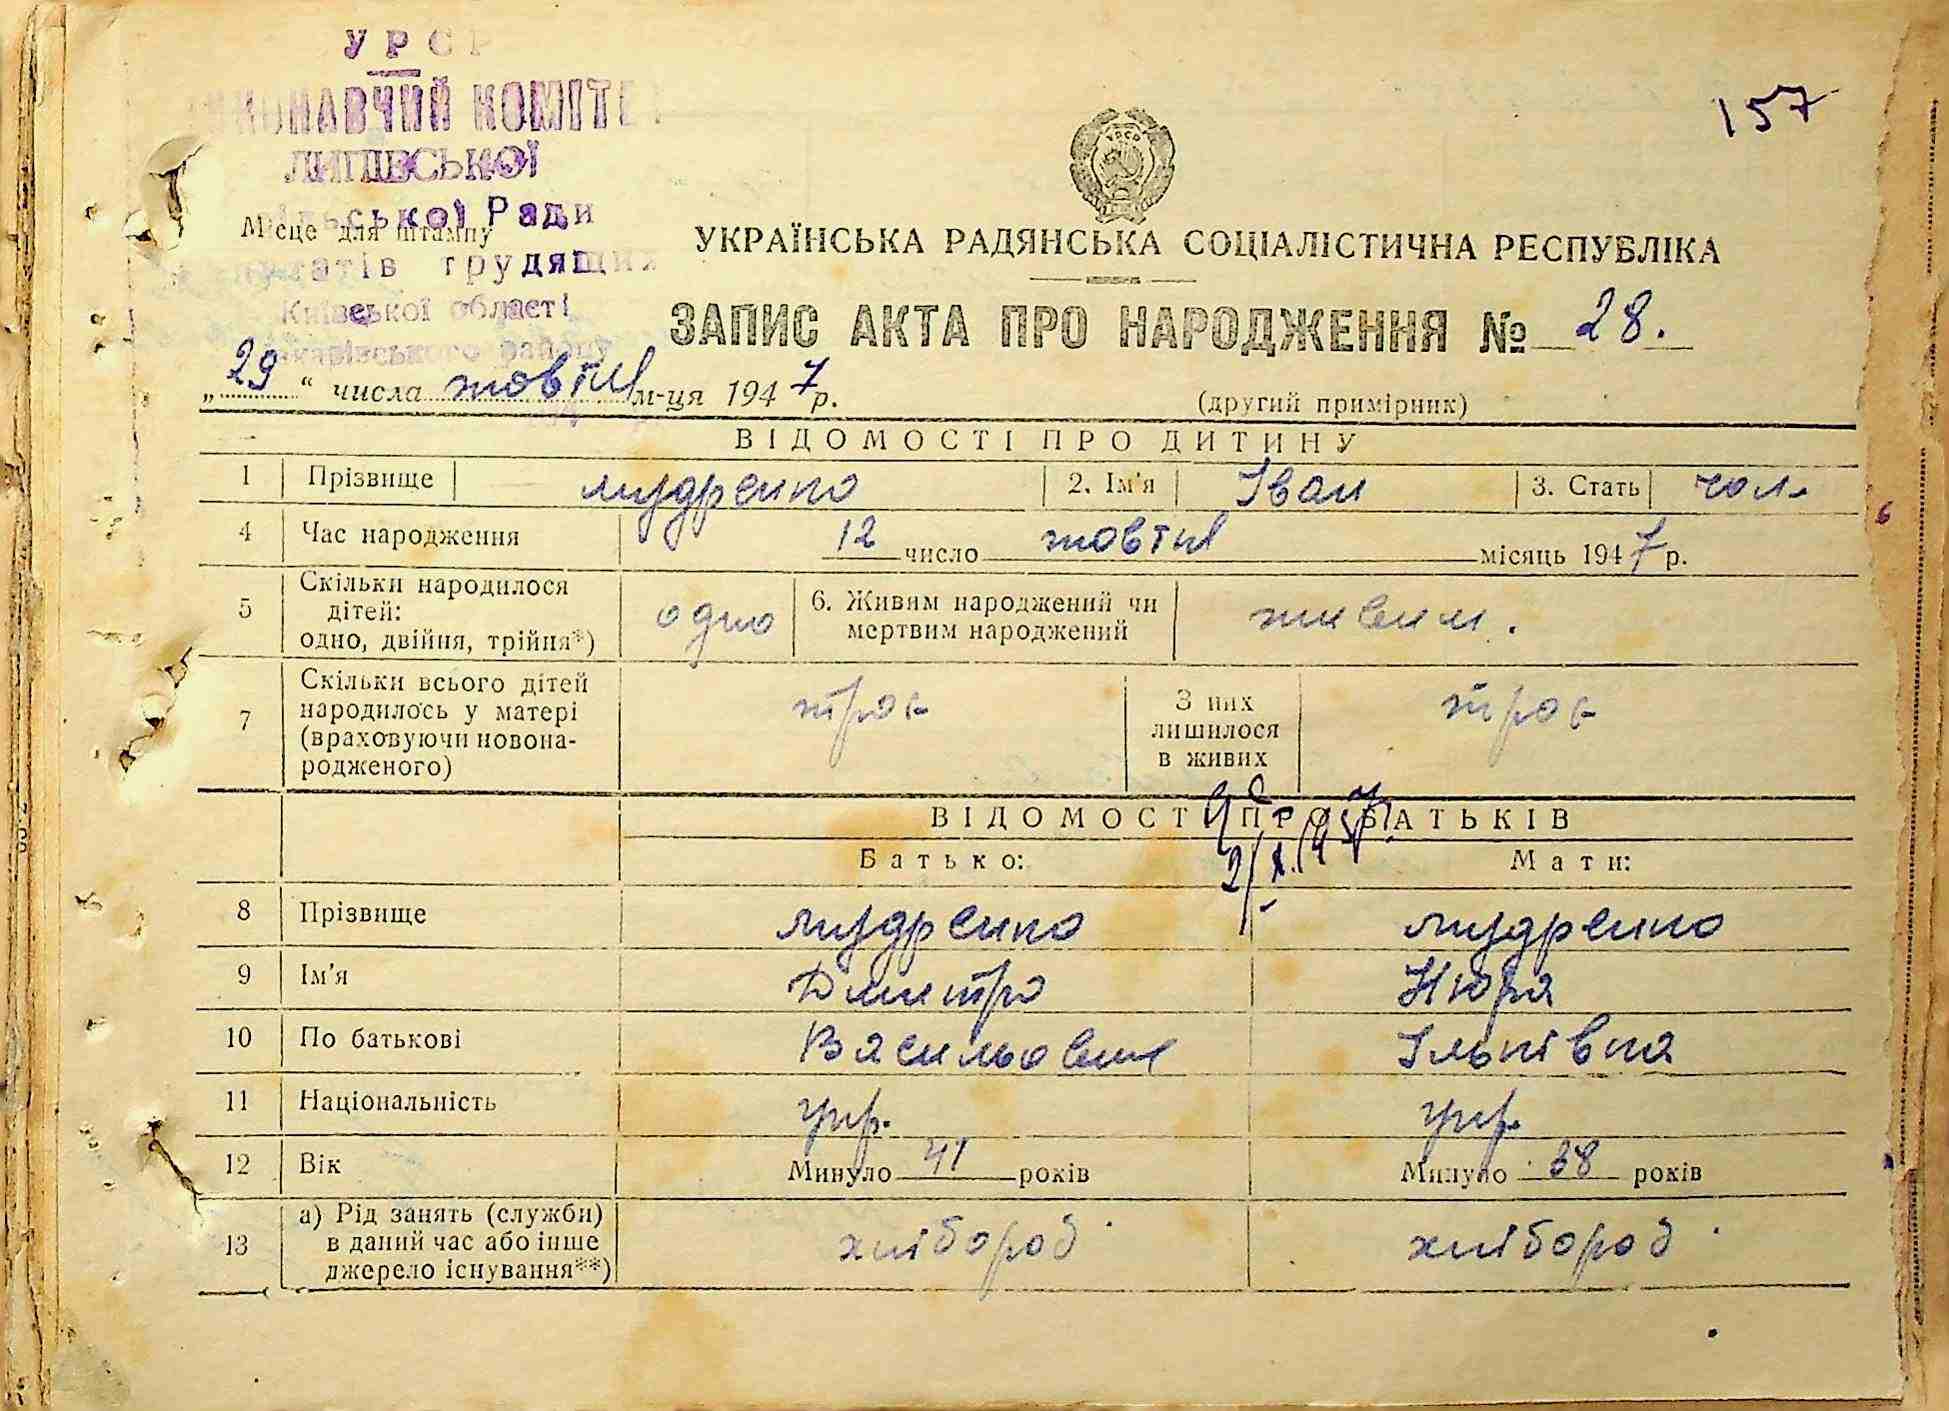 УРСР
ВИКОНАВЧИЙ КОМІТЕТ
ЛИПІВСЬКОЇ
сільської Ради
Місце для штампу
депутатів трудящих
Київської області
Макарівського району
157
УРСР
УКРАЇНСЬКА РАДЯНСЬКА СОЦІАЛІСТИЧНА РЕСПУБЛІКА
ЗАПИС АКТА ПРО НАРОДЖЕННЯ № 28.
„29“ числа жовтня м-ця 1947 р.
(другий примірник)
ВІДОМОСТІ ПРО ДИТИНУ
1 Прізвище Мудренко 2. Ім'я Іван 3. Стать чол.
4 Час народження 12 число жовтня місяць 1947 р.
5 Скільки народилося дітей: одно, двійня, трійня*) одно 6. Живим народжений чи мертвим народжений живим.
7 Скільки всього дітей народилось у матері (враховуючи новонародженого) троє З них лишилося в живих троє
ВІДОМОСТІ ПРО БАТЬКІВ
Батько: Мати:
8 Прізвище Мудренко Мудренко
9 Ім'я Дмитро Нюра
10 По батькові Васильович Ільківна
11 Національність укр. укр.
12 Вік Минуло 41 років Минуло 38 років
13 а) Рід занять (служби) в даний час або інше джерело існування**) хлібороб хлібороб